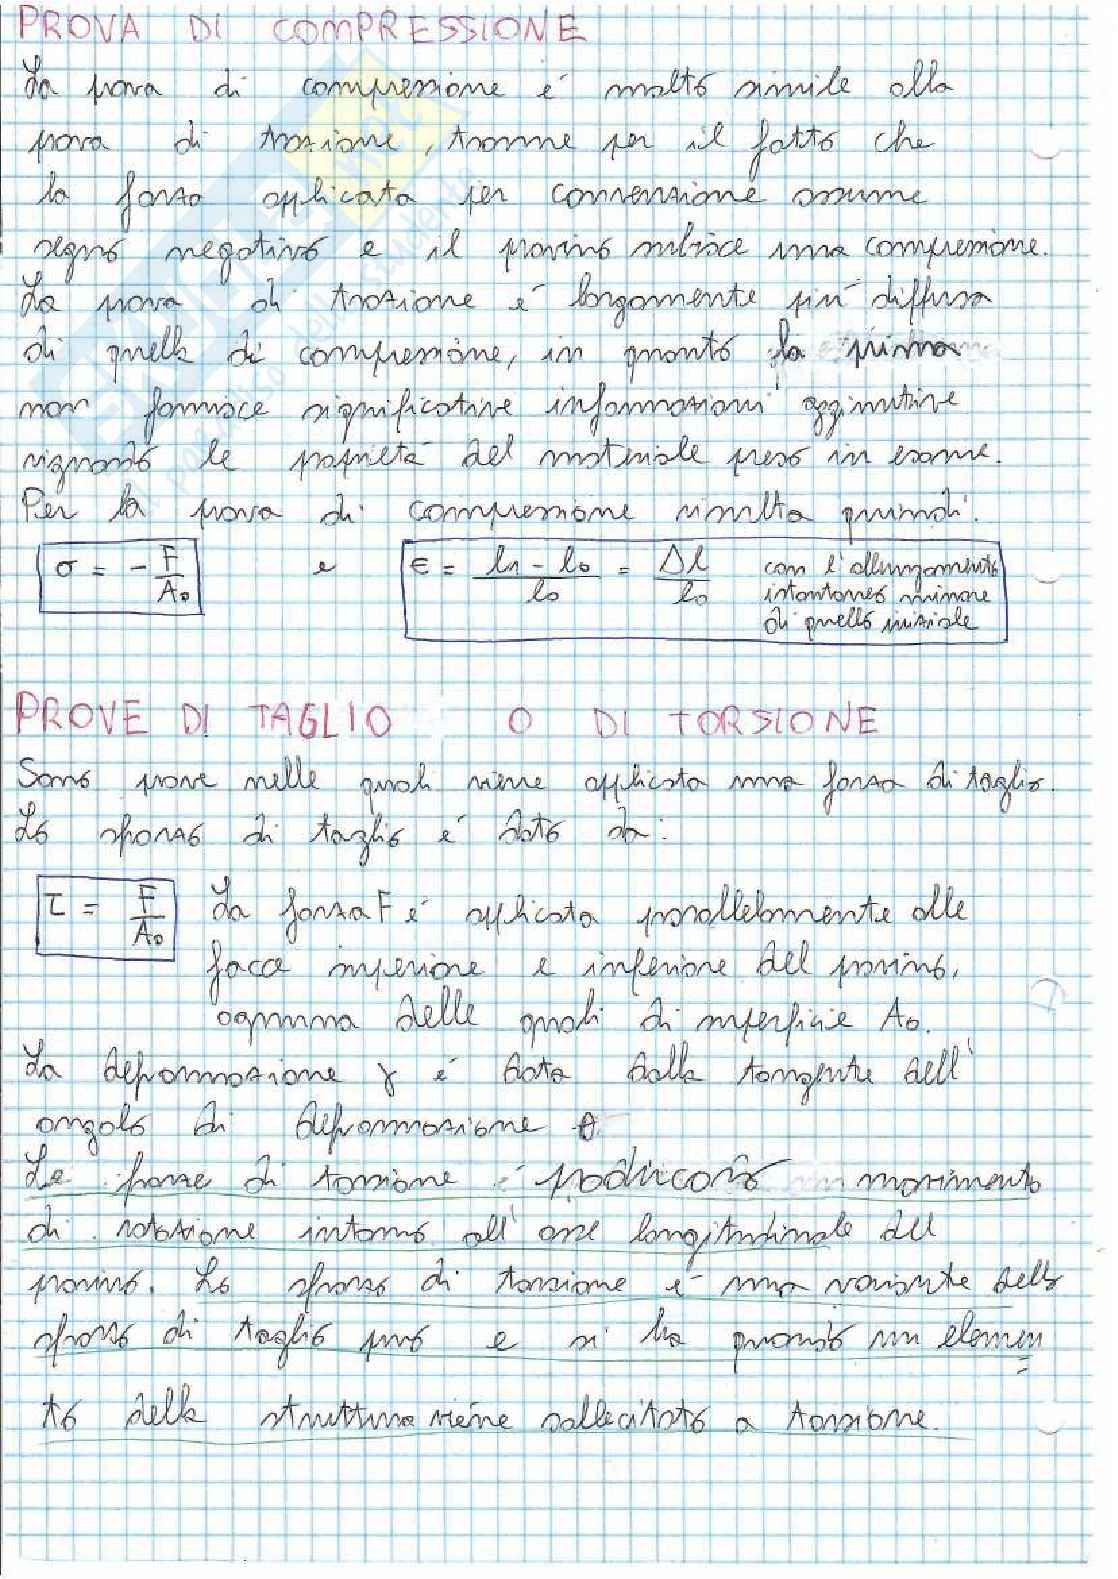 PROVA DI COMPRESSIONE
La prova di compressione é molto simile alla
prova di trazione, tranne per il fatto che
la forza applicata per convenzione assume
segno negativo e il provino subisce una compressione.
La prova di trazione é largamente piú diffusa
di quella di compressione, in quanto la prima
non fornisce significative informazioni aggiuntive
riguardo le proprietá del materiale preso in esame.
Per la prova di compressione risulta quindi:
σ = - F/A₀ e ε = l₁ - l₀ / l₀ = Δl / l₀ con l'allungamento
istantaneo minore
di quello iniziale
PROVE DI TAGLIO O DI TORSIONE
Sono prove nelle quali viene applicata una forza di taglio.
Lo sforzo di taglio é dato da:
τ = F/A₀ La forza F é applicata parallelamente alle
facce superiore e inferiore del provino,
ognuna delle quali di superficie A₀.
La deformazione γ é data dalla tangente dell'
angolo di deformazione θ
Le forze di torsione producono movimento
di rotazione intorno all'asse longitudinale del
provino. Lo sforzo di torsione é una variante dello
sforzo di taglio puro e si ha quando un elemen
to della struttura viene sollecitato a torsione.